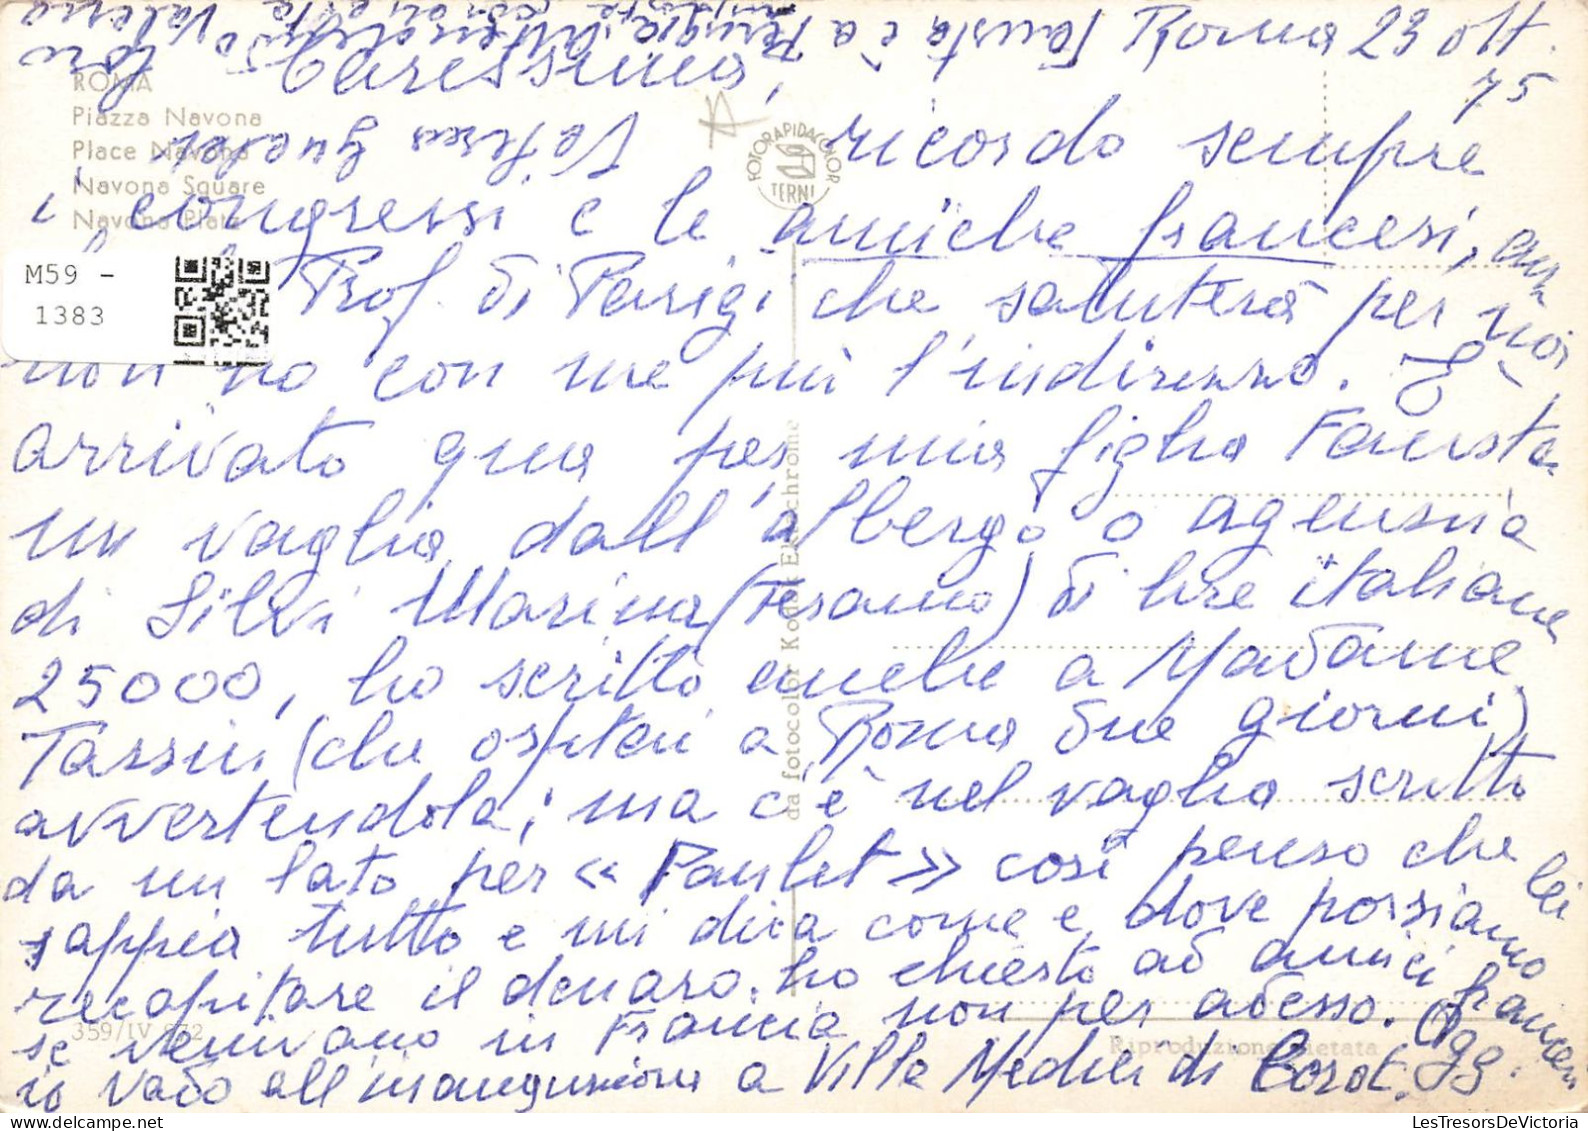 Fausta è a Perugia Università
Roma 23 ott.
75
Carissima,
ROMA
Piazza Navona
Place Navona
Navona Square
Navona Platz
FOTORAPIDACOLOR
TERNI
ricordo sempre
i congressi e le amiche francesi,
Prof. di Parigi che saluterà per noi,
non ho con me più l'indirizzo. È
arrivato qua per mia figlia Fausta
un vaglia dall'albergo o agenzia
di Silvi Marina (Teramo) di lire italiane
25000, ho scritto anche a Madame
Tassin (che ospitai a Roma due giorni)
avvertendola; ma c'è nel vaglio scritto
da un lato per « Paulet » così penso che lei
sappia tutto e mi dica come e dove possiamo
recapitare il denaro. ho chiesto ad amici francesi
se venivano in Francia non per adesso. Ogg.
io vado all'inaugurazione a Villa Medici di Corot.
M59 -
1383
da fotocolor Kodak Ektachrome
359/IV 872
Riproduzione vietata
LesTresorsDeVictoria.com